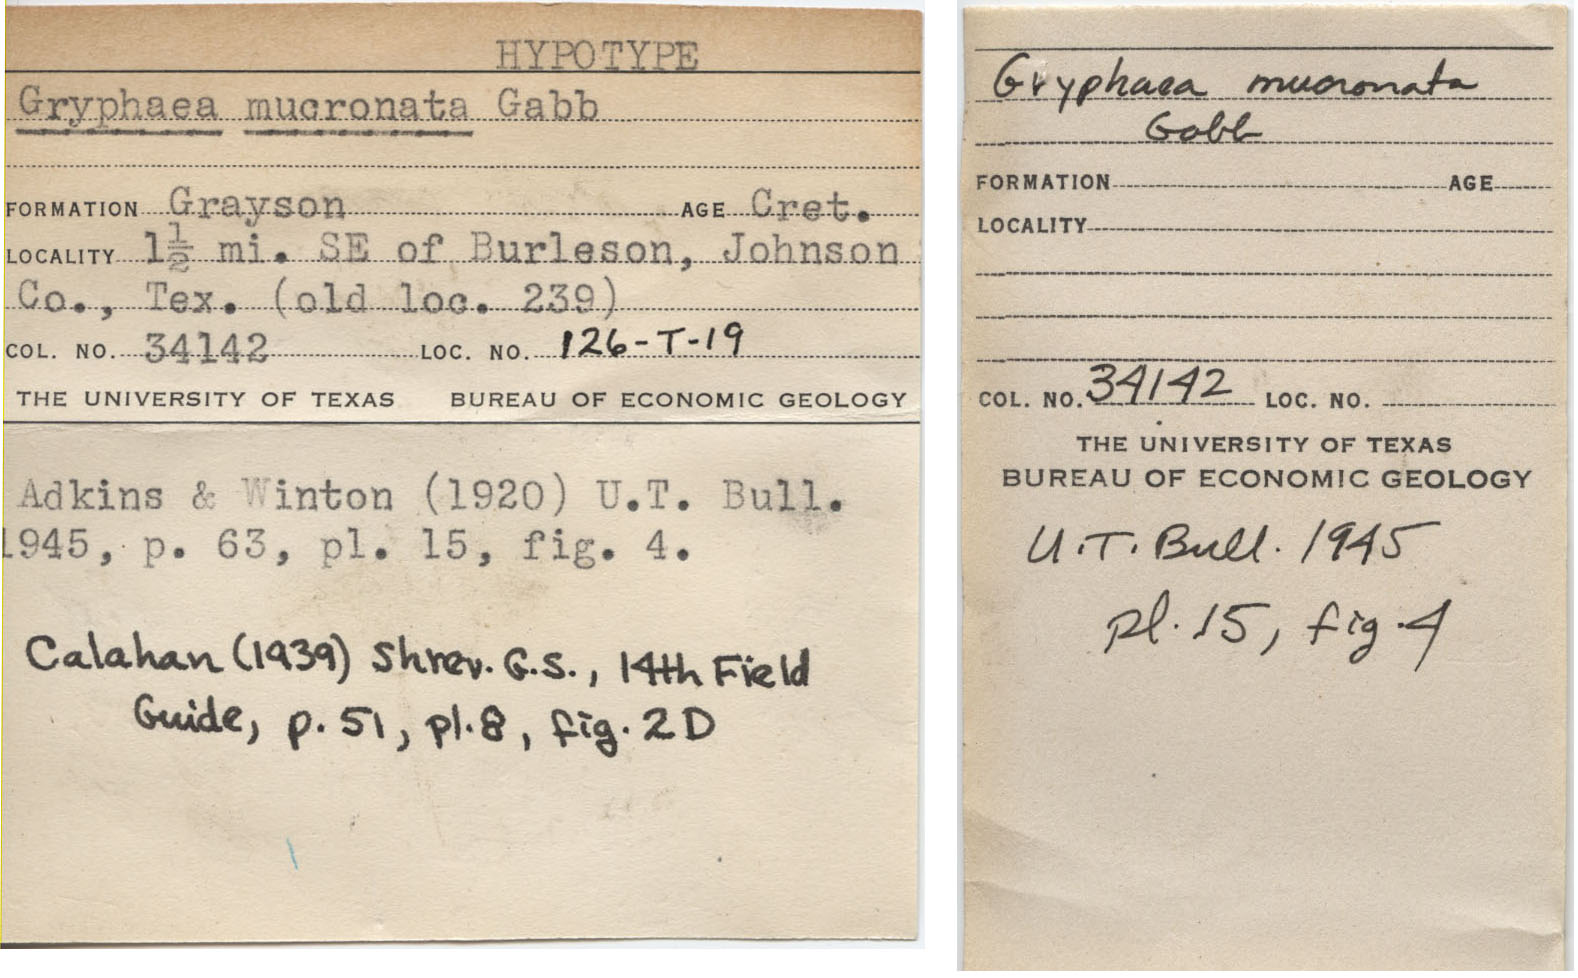 HYPOTYPE
Gryphaea mucronata Gabb
FORMATION Grayson AGE Cret.
LOCALITY 1½ mi. SE of Burleson, Johnson
Co., Tex. (old loc. 239)
COL. NO. 34142 LOC. NO. 126-T-19
THE UNIVERSITY OF TEXAS BUREAU OF ECONOMIC GEOLOGY
Adkins & Winton (1920) U.T. Bull.
1945, p. 63, pl. 15, fig. 4.
Calahan (1939) Shrev. G.S., 14th Field
Guide, p. 51, pl. 8, fig. 2D
Gryphaea mucronata
Gabb
FORMATION AGE
LOCALITY
COL. NO. 34142 LOC. NO.
THE UNIVERSITY OF TEXAS
BUREAU OF ECONOMIC GEOLOGY
U.T. Bull. 1945
pl. 15, fig. 4